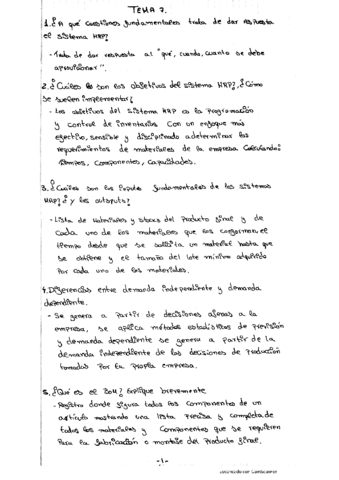 TEMA 7.
1. ¿A qué cuestiones fundamentales trata de dar respuesta
el sistema MRP?
- Trata de dar respuesta al "qué, cuando, cuanto se debe
aprovisionar".
2. ¿Cuáles son los objetivos del sistema MRP? ¿Cómo
se suelen implementar?
- Los objetivos del sistema MRP es la Programación
y control de inventarios con un enfoque más
efectivo, sensible y disciplinado a determinar los
requerimientos de materiales de la empresa calculando:
tiempos, componentes, capacidades.
3. ¿Cuáles son los inputs fundamentales de los sistemas
MRP? ¿y los outputs?
- Lista de materiales y stocks del Producto final y de
cada uno de los materiales que los conforman, el
tiempo desde que se solicita un material hasta que
se obtiene y el tamaño del lote mínimo adquirido
por cada uno de los materiales.
4. Diferencias entre demanda independiente y demanda
dependiente.
- Se genera a partir de decisiones ajenas a la
empresa, se aplica métodos estadísticos de previsión
y demanda dependiente se genera a partir de la
demanda independiente de las decisiones de Producción
tomadas por la propia empresa.
5. ¿Qué es el BOM? Explique brevemente
- Registro donde figura todos los componentes de un
artículo mostrando una lista precisa y completa de
todos los materiales y componentes que se requieren
para la fabricación o montaje del Producto final.
-1-